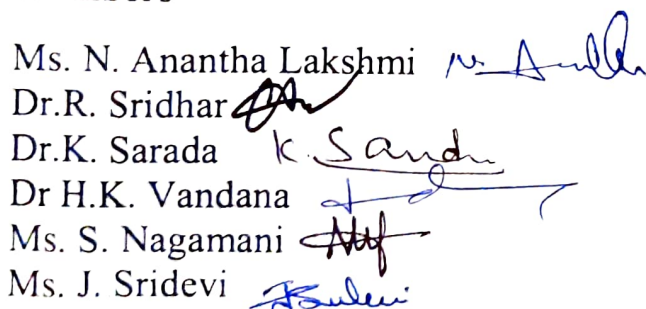 Ms. N. Anantha Lakshmi
Dr.R. Sridhar
Dr.K. Sarada K. Sarada
Dr H.K. Vandana
Ms. S. Nagamani
Ms. J. Sridevi